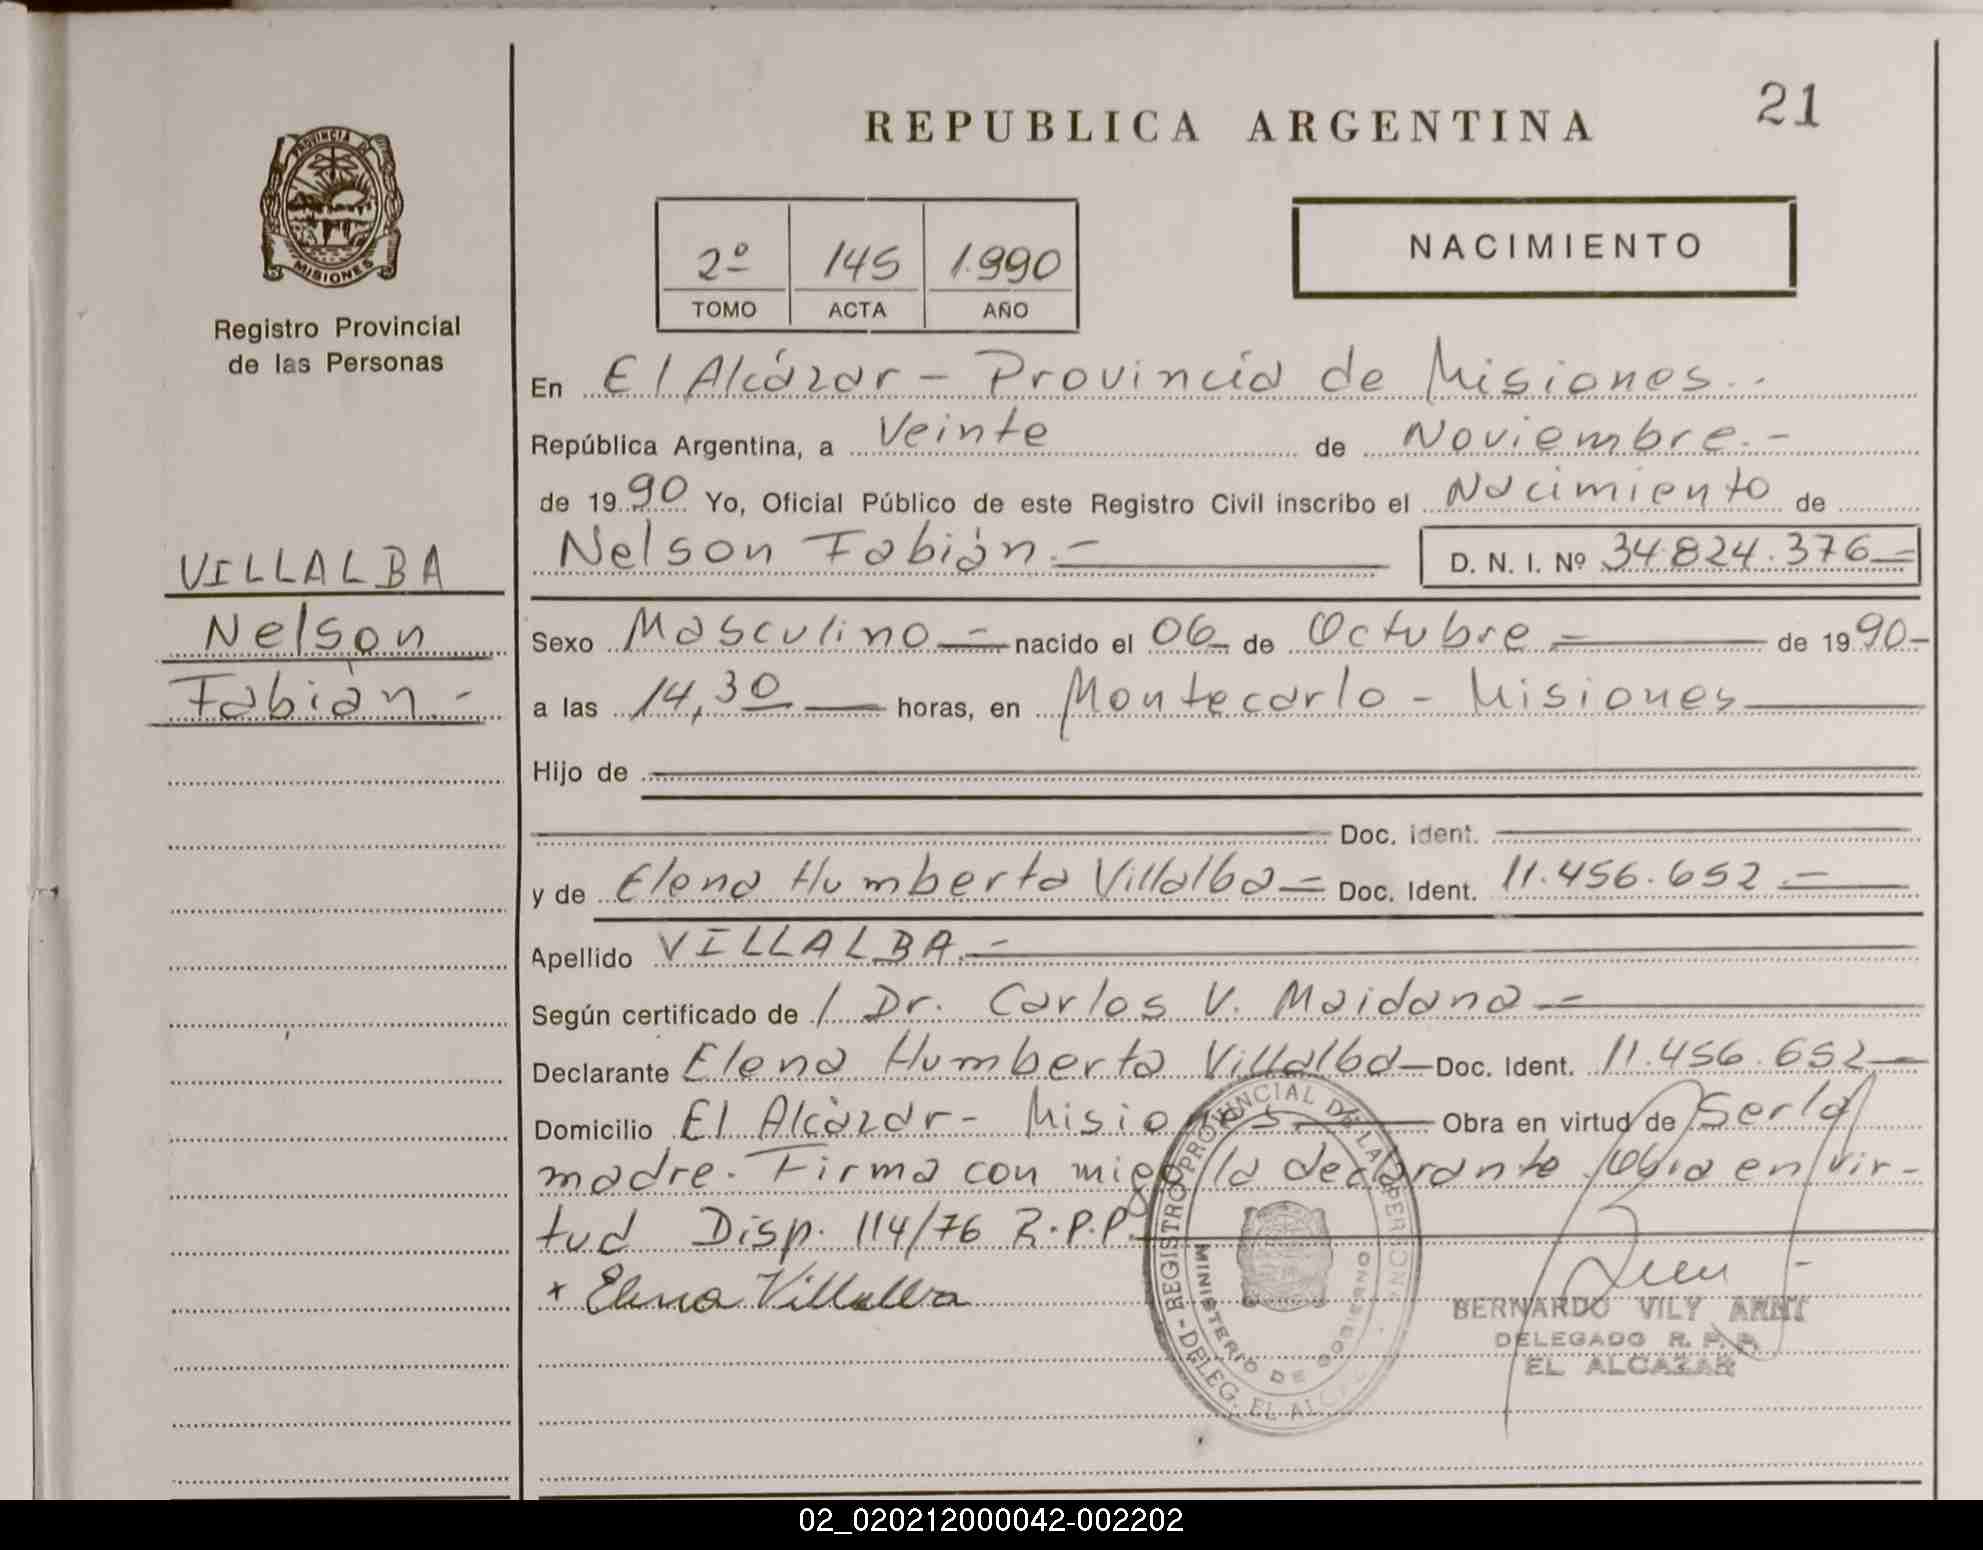 REPUBLICA ARGENTINA
21
PROVINCIA DE
MISIONES
Registro Provincial
de las Personas
2º 145 1.990
TOMO ACTA AÑO
NACIMIENTO
En El Alcázar - Provincia de Misiones.-
República Argentina, a Veinte de Noviembre.-
de 1990 Yo, Oficial Público de este Registro Civil inscribo el Nacimiento de
Nelson Fabián.- D. N. I. Nº 34.824.376.-
VILLALBA
Nelson
Fabián.-
Sexo Masculino.- nacido el 06 de Octubre.- de 1990.-
a las 14,30 horas, en Montecarlo - Misiones
Hijo de
Doc. Ident.
y de Elena Humberta Villalba.- Doc. Ident. 11.456.652.-
Apellido VILLALBA.-
Según certificado de / Dr. Carlos V. Maidana.-
Declarante Elena Humberta Villalba- Doc. Ident. 11.456.652.-
Domicilio El Alcázar - Misiones. Obra en virtud de Ser la
madre. Firma con migo la declarante. Obra en vir-
tud Disp. 114/76 R.P.P.
x Elena Villalba
REGISTRO PROVINCIAL DE LA PERSONA - DELEG. EL ALC
MINISTERIO DE GOBIERNO
BERNARDO VILY
DELEGADO R. P. P.
EL ALCAZAR
02_020212000042-002202